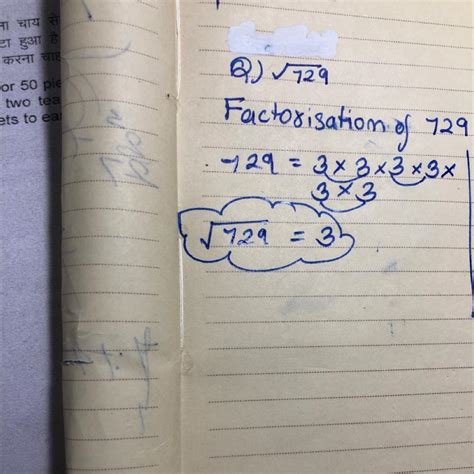 ना चाय से
टा हुआ है
करना चाह
or 50 pie
two tea
ets to ea
Q) √729
Factorisation of 729
729 = 3 × 3 × 3 × 3 ×
3 × 3
√729 = 3